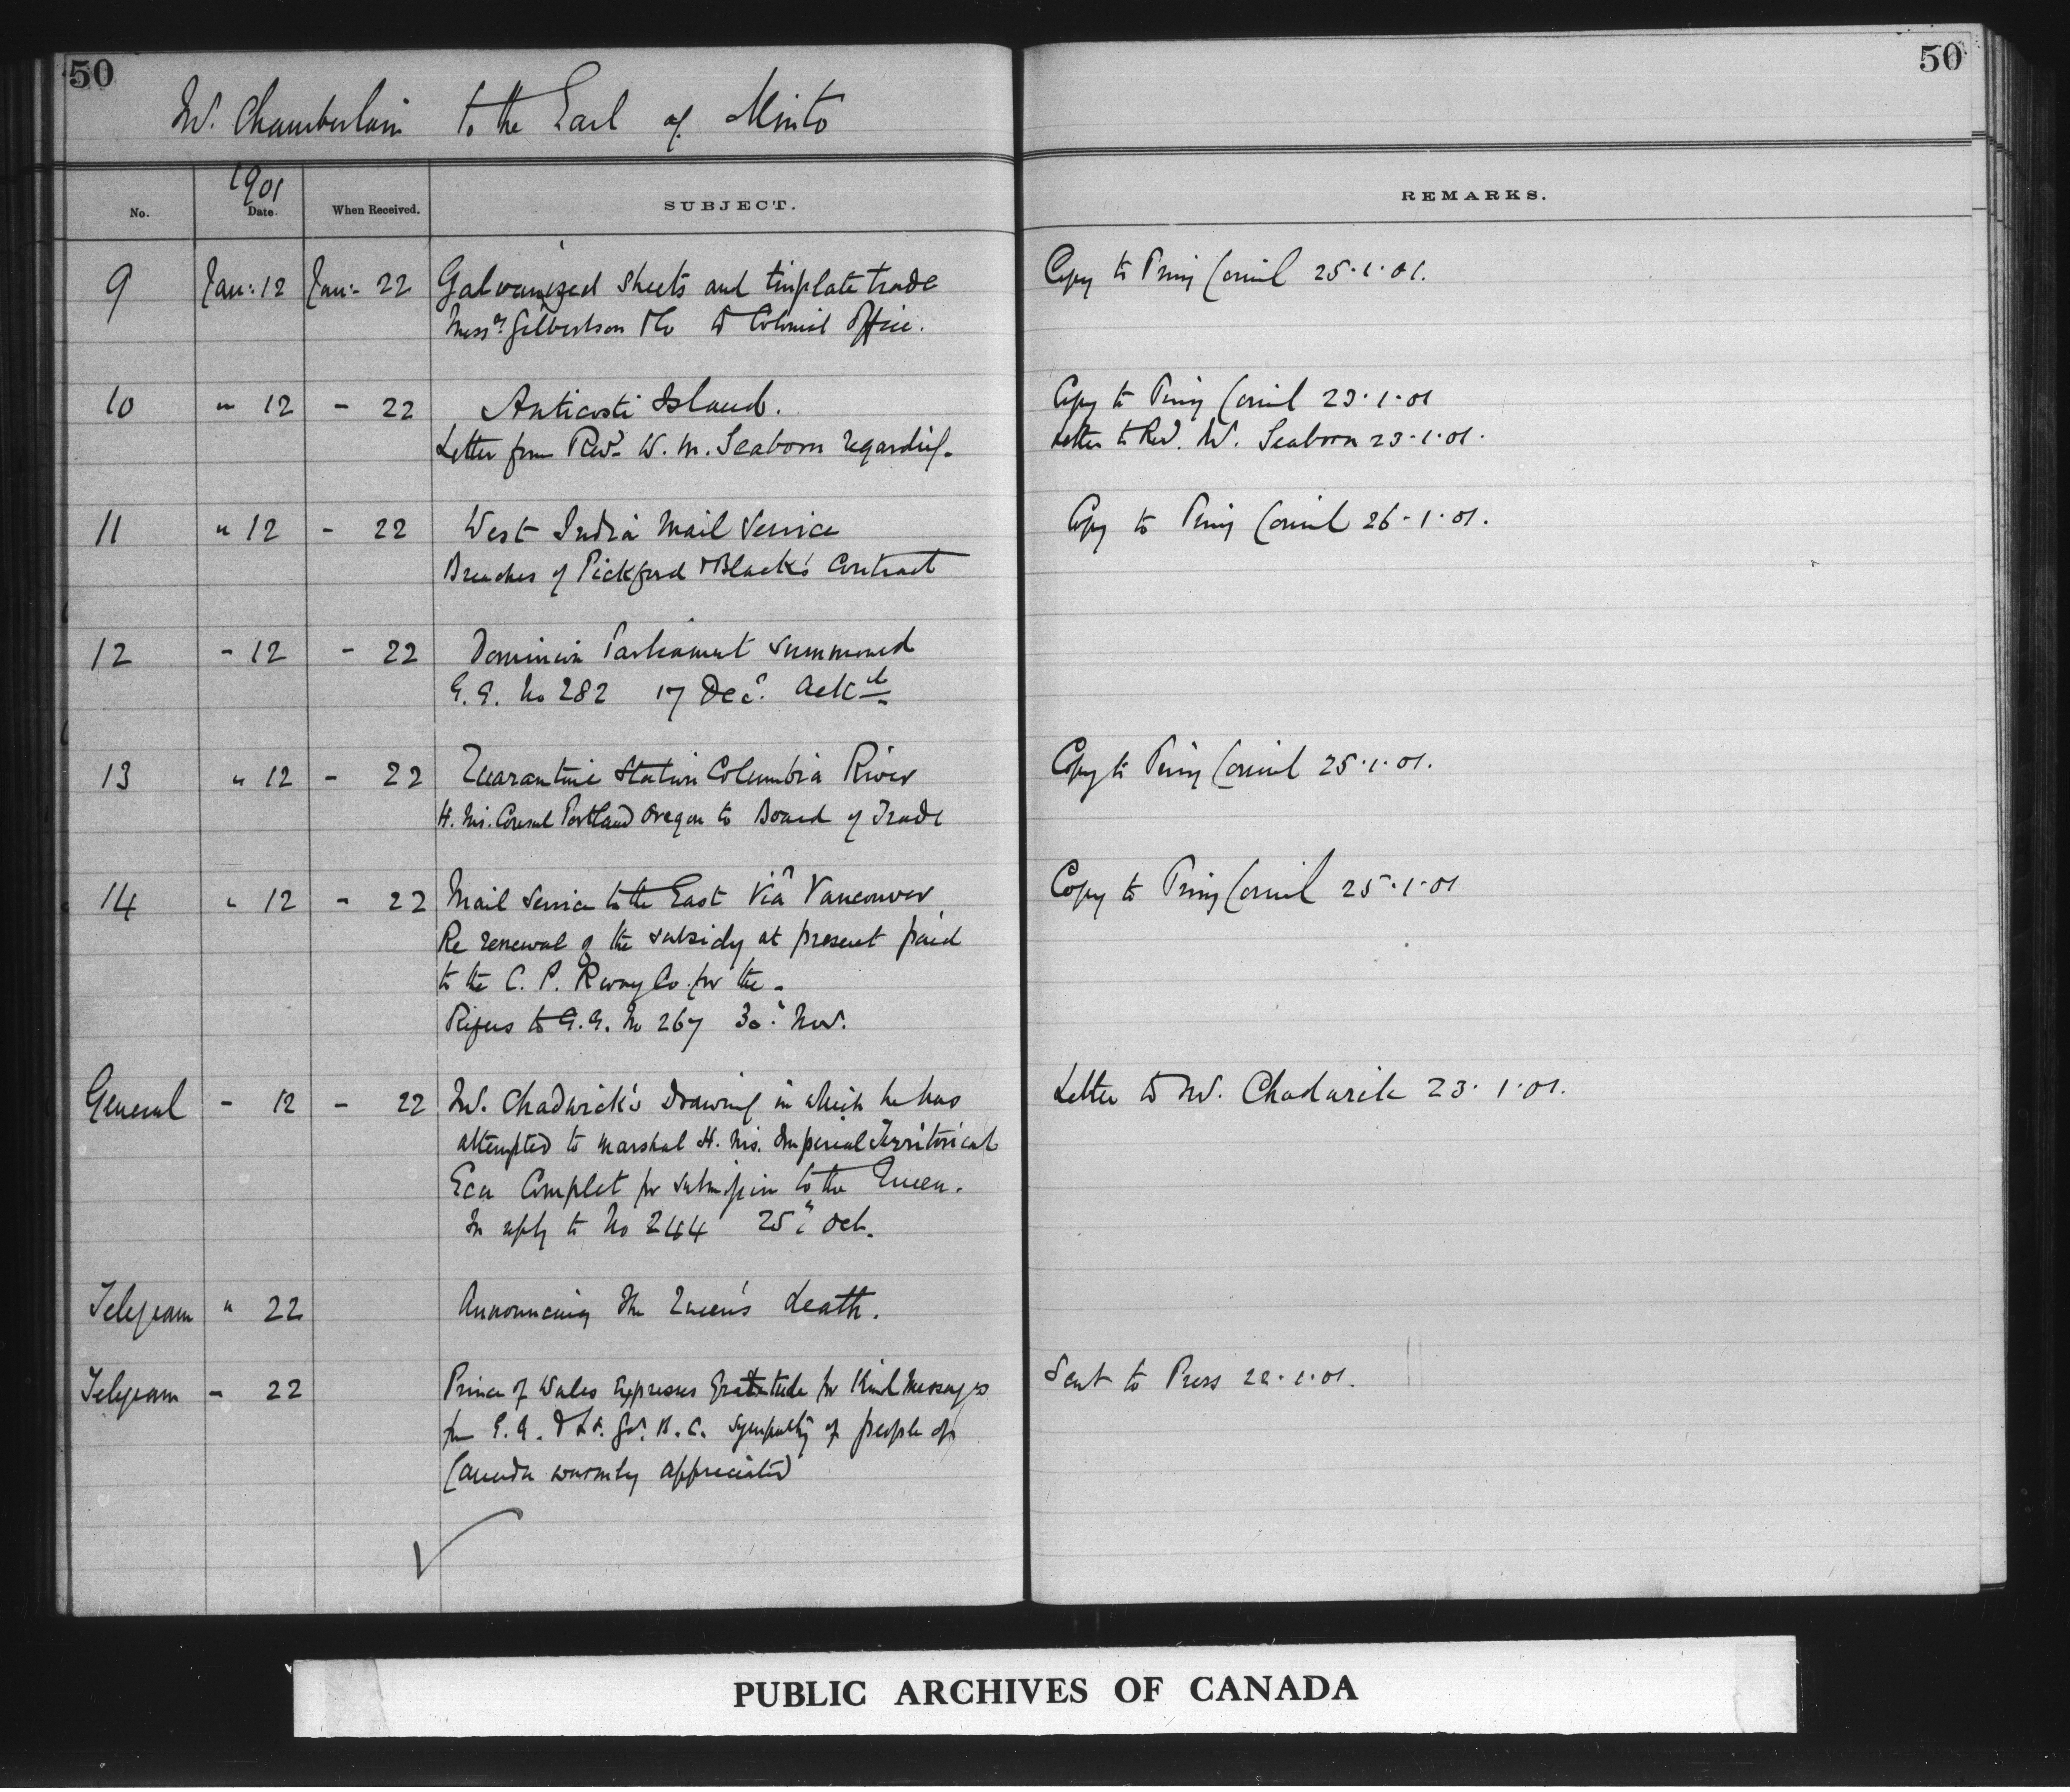 50
50
Mr. Chamberlain to the Earl of Minto
1901
No. Date. When Received. SUBJECT. REMARKS.
9 Jan: 12 Jan: 22 Galvanized sheets and tinplate trade Copy to Privy Council 25.1.01.
Messrs. Gilbertson & Co to Colonial Office.
10 " 12 - 22 Anticosti Island. Copy to Privy Council 23.1.01
Letter from Revd. W. M. Seaborn regarding. Letter to Revd. W. Seaborn 23.1.01.
11 " 12 - 22 West India Mail Service Copy to Privy Council 26.1.01.
Breaches of Pickford & Black's Contract
12 - 12 - 22 Dominion Parliament summoned
G.G. No 282 17 Dec. Ackd
13 " 12 - 22 Quarantine Station Columbia River Copy to Privy Council 25.1.01.
H. M. Consul Portland Oregon to Board of Trade
14 " 12 - 22 Mail Service to the East Via Vancouver Copy to Privy Council 25.1.01
Re renewal of the subsidy at present paid
to the C. P. Rway Co. for the -
Refers to G.G. No 267 30th Nov.
General - 12 - 22 Mr. Chadwick's Drawing in which he has Letter to Mr. Chadwick 23.1.01.
attempted to marshal H. M's. Imperial Territorial
Complet for submission to the Queen.
In reply to No 244 25th Oct.
Telegram " 22 Announcing the Queen's death.
Telegram - 22 Prince of Wales expresses gratitude for Kind Messages Sent to Press 22.1.01.
from G.G. & Lt. Gov. B.C. sympathy of people of
Canada warmly appreciated
PUBLIC ARCHIVES OF CANADA